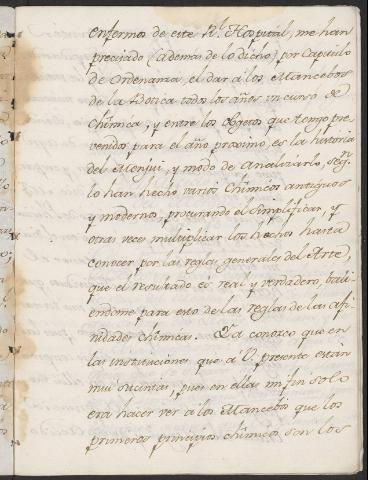 enfermos de este Rl. Hospital, me han
preciado (ademas de lo dicho) por Capitulo
de Ordenanza, el dar a los Mancebos
de la Botica todos los años un curso de
Chîmica, y entre los Objetos que tengo pre-
venidos para el año proximo, es la historia
del Menjui, y modo de Analizarlo, segn.
lo han hecho varios Chîmicos antiguos
y modernos, procurando el simplificar, y
otras veces multiplicar los hechos hasta
conocer por las reglas generales del Arte,
que el resultado es real y verdadero, bali-
endome para esto de las reglas de las afi-
nidades chîmicas. Ya conozco que en
las instrucciones que a V. presente están
mui sucintas, pues en ellas mi fin solo
era hacer ver a los Mancebos que los
primeros principios chîmicos son los